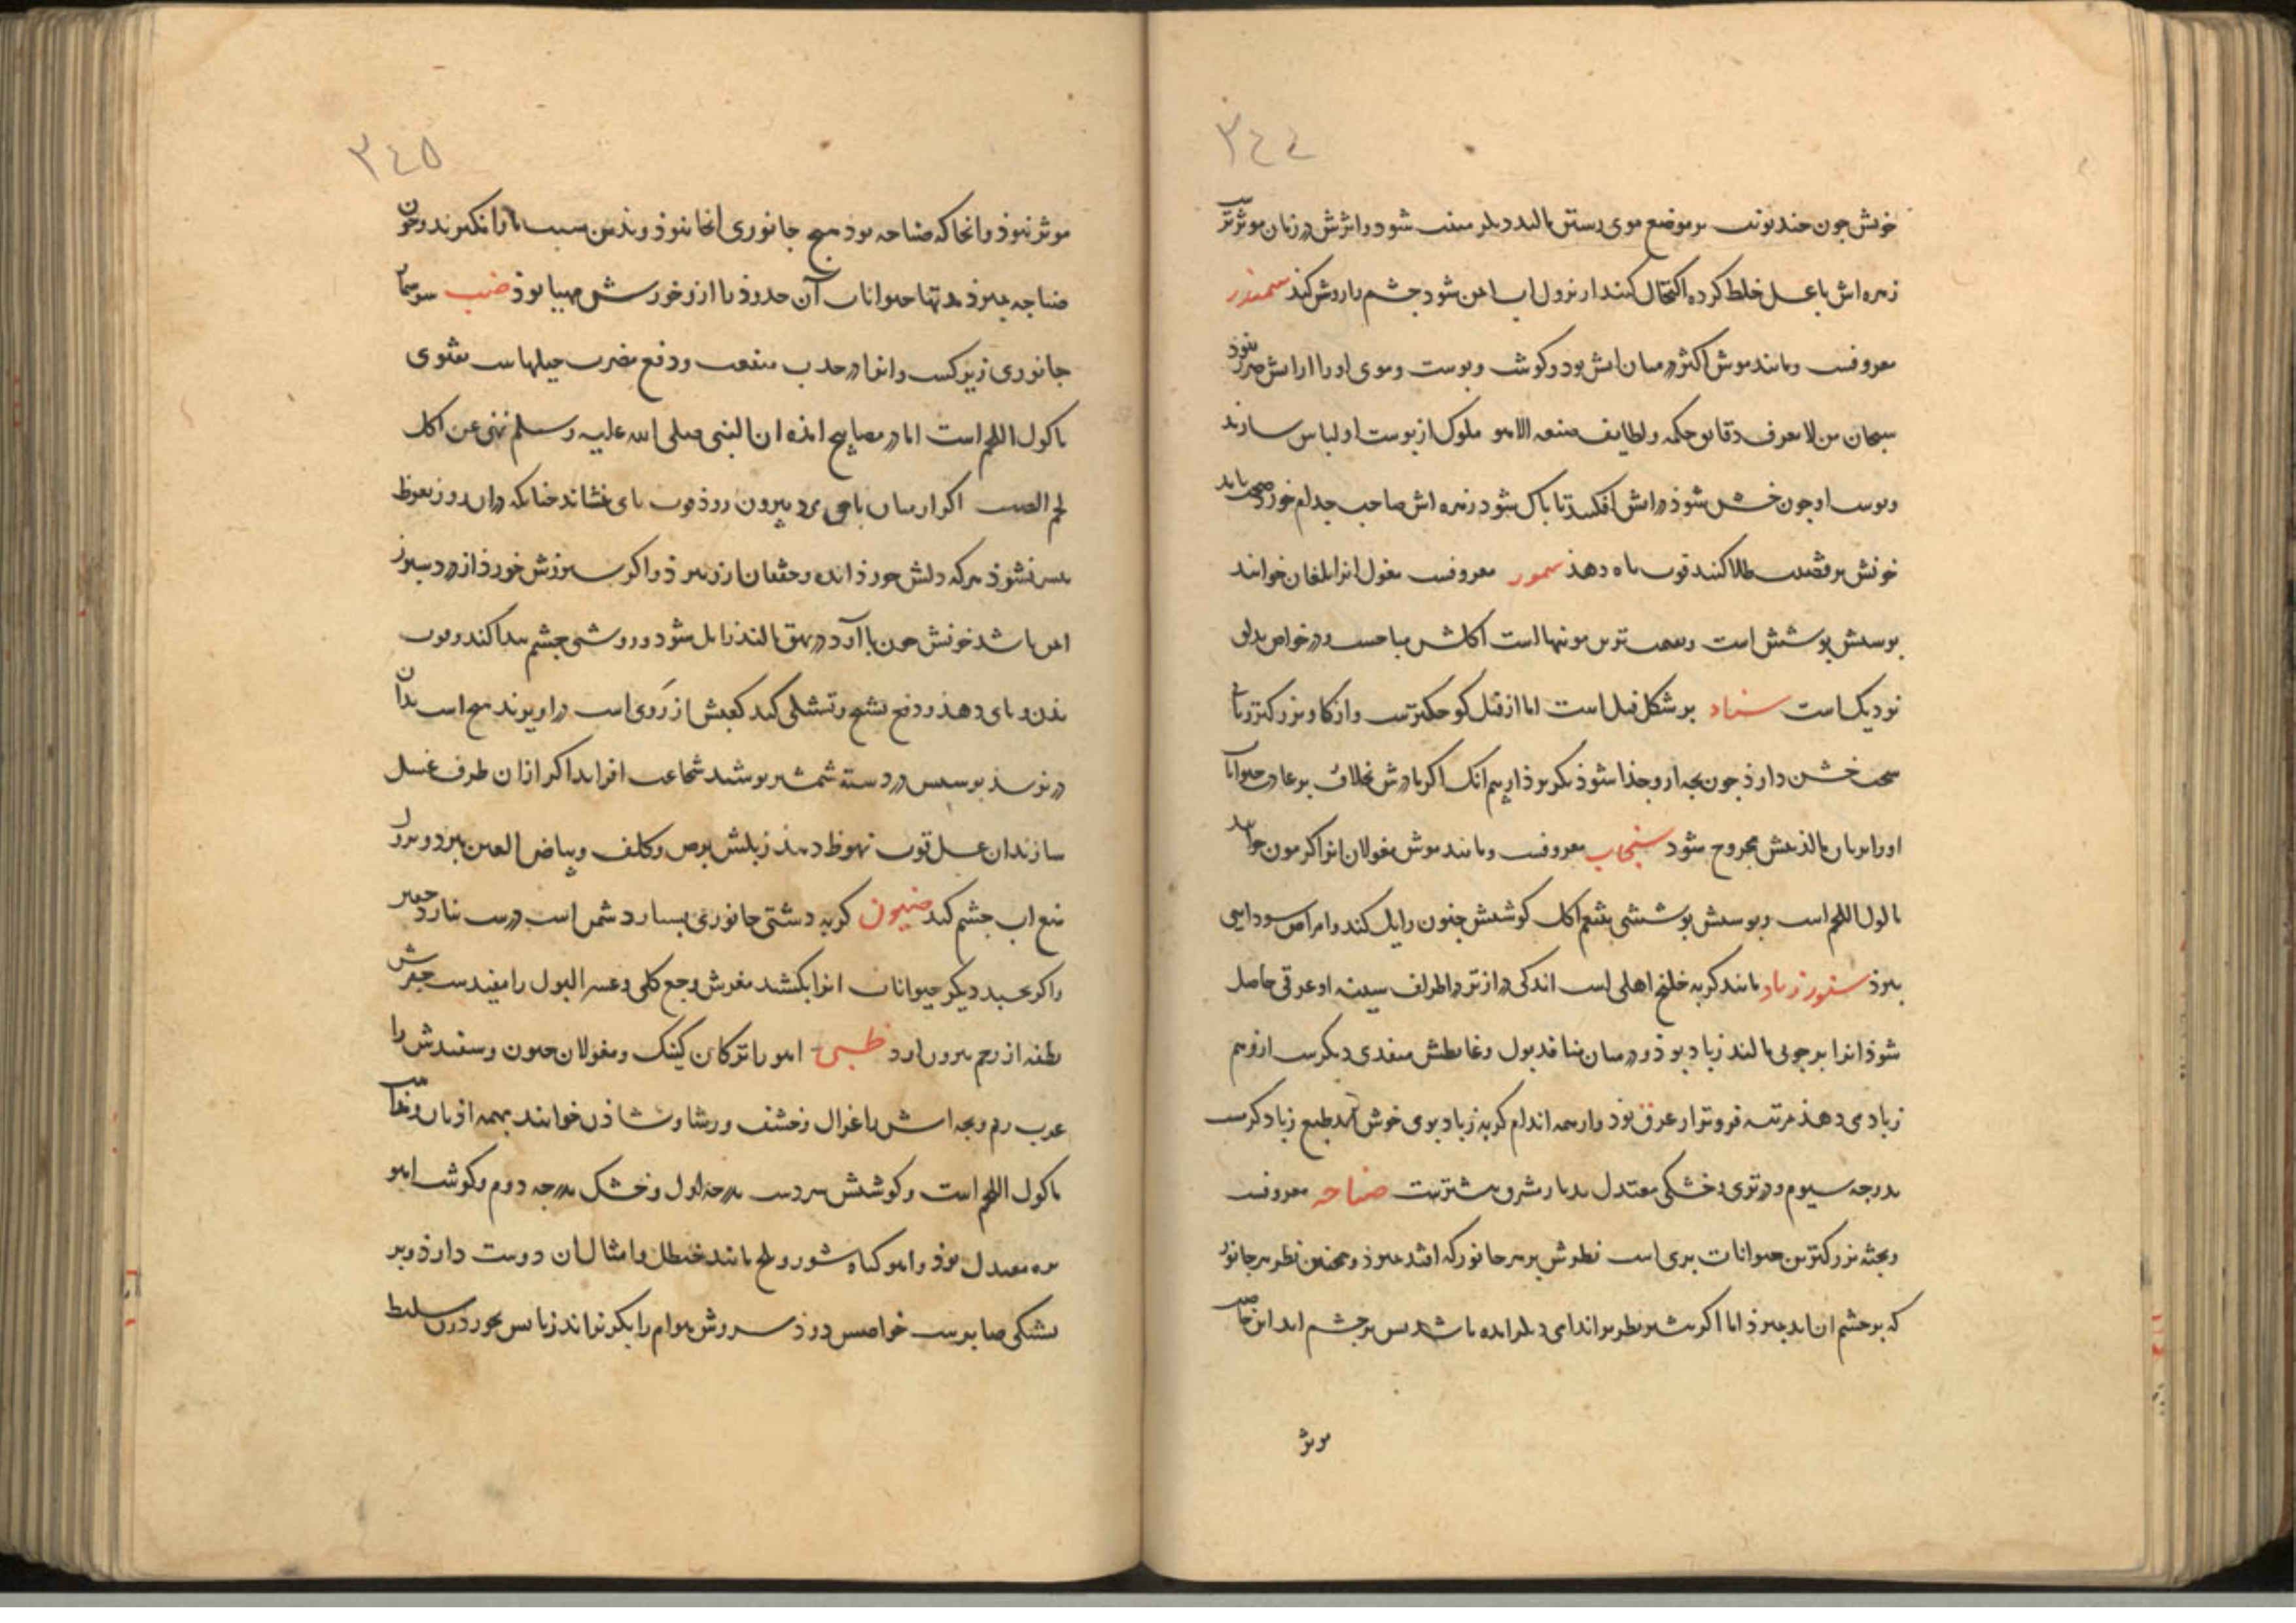 ٣٤٤
خونش چون چند نوبت بر موضع موی رستن مالند دیگر منبت نشود و اثرش در زنان موثرتر
زهره اش با عسل خلط کرده اکتحال کنند از نزول اب ایمن شود چشم را روشن کند سمندر
معروفست و مانند موش اکثر در میان اتش بود و کوشت و پوست و موی او را از اتش ضرر نبود
سبحان من لا یعرف دقایق حکمه و لطایف صنعه الا هو ملوک از پوست او لباس سازند
و پوست او چون شوذ در اتش افکنند تا پاک شود زهره اش صاحب جذام خورد صحت یابد
خونش بر قضیب طلا کنند قوت باه دهذ سمور معروفست مغول انرا بلغان خوانند
پوستش پوشش است و قیمت ترین موینها است اکلش مباحست و در خواص بدلق
نزدیک است سناد بر شکل فیل است اما از فیل کوچکترست و از کاو بزرکتر زبانی
سخت خشن دارذ چون بچه از او جذا شوذ بکریزد از بیم انک اکر مادرش بخلاف حیوانات
او را بزبان مالذ تنش مجروح شود سنجاب معروفست و مانند موش مغولان انرا کرمون خوانند
ماکول اللحم است و پوستش پوششی بتنعم اکل کوشتش جنون زایل کند و امراض سودایی
ببرذ سنور زباد مانند کربه خانکی اهلی است اندکی درازتر در اطراف سینه او عرقی حاصل
شوذ انرا بر چوبی مالند زباد بوذ و در میان منافذ بول و غایطش منفذی دیکرست از و هم
زباد می دهذ مرتبه فروتر از عرق بوذ و از همه اندام کربه زباد بوی خوش اید طبع زباد کرمست
بدرجه سیوم و در تری و خشکی معتدل بدیار مشرق بیشترست صناجه معروفست
و بجثه بزرکترین حیوانات بری است نظرش بر هر جانور که افتد بمیرذ و همچنین نظر هر جانور
که بر چشم ان اید بمیرذ اما اکر بیشتر نظر بر اندامی دیکر امده باشد پس بر چشم اید این خاصیت
موثر
٣٤٥
موثر نبوذ و انجا که صناجه بود هیچ جانوری انجا نبوذ و بذین سبب مار انکیزند و چون
صناجه بمیرذ مدتها حیوانات آن حدوذ را از و خورش مهیا بوذ ضب سوسمار
جانوری زیرکست و انرا در جذب منفعت و دفع مضرت حیلهاست بفتوی
ماکول اللحم است اما در مصابیح امذه ان النبی صلی الله علیه و سلم نهی عن اکل
لحم الضب اکر از میان پای مرد بیرون روذ قوت بای نشاند چنانکه دران روز نعوظ
میسر نشوذ هرکه دلش خورذ انده و خفقان ازو ببرذ و اکر سپرزش خورذ از درد سپرز
ایمن باشد خونش چون با آرد در بهق مالند زایل شود و روشنی چشم پیدا کند و قوت
بذن و بای دهذ و دفع تشنج و تشنکی کند کعبش از روی است در اویزند هیچ اسب بدان
در نرسذ پوستش در دسته شمشیر پوشند شجاعت افزاید اکر ازان ظرف عسل
سازند ان عسل قوت نهوظ دهذ زبلش برص و کلف و بیاض العین ببرد و نزول
منع اب چشم کند ضیون کربه دشتی جانوری بسیار دشمن است درست نیارد خمیر
و اکر بجنبد دیکر حیوانات انرا بکشند مغزش وجع کلی و عسر البول را مفیدست
نطفه از رحم بیرون ارد ظبی اهو را ترکان کیک و مغولان جیرن و سفیدش را
عرب ریم و بچه اش را غزال و خشف و رشا و شاذن خوانند بهمه ازمان
ماکول اللحم است و کوشتش سردست بدرجه اول و خشک بدرجه دوم و کوشت اهو
بره معتدل بوذ و اهو کیاه شور و تلخ مانند حنظل و امثال ان دوست دارذ و بر
تشنکی صابرست خواصش دوذ سروش هوام را بکریزاند زبانش بخورذ زن سلیطه